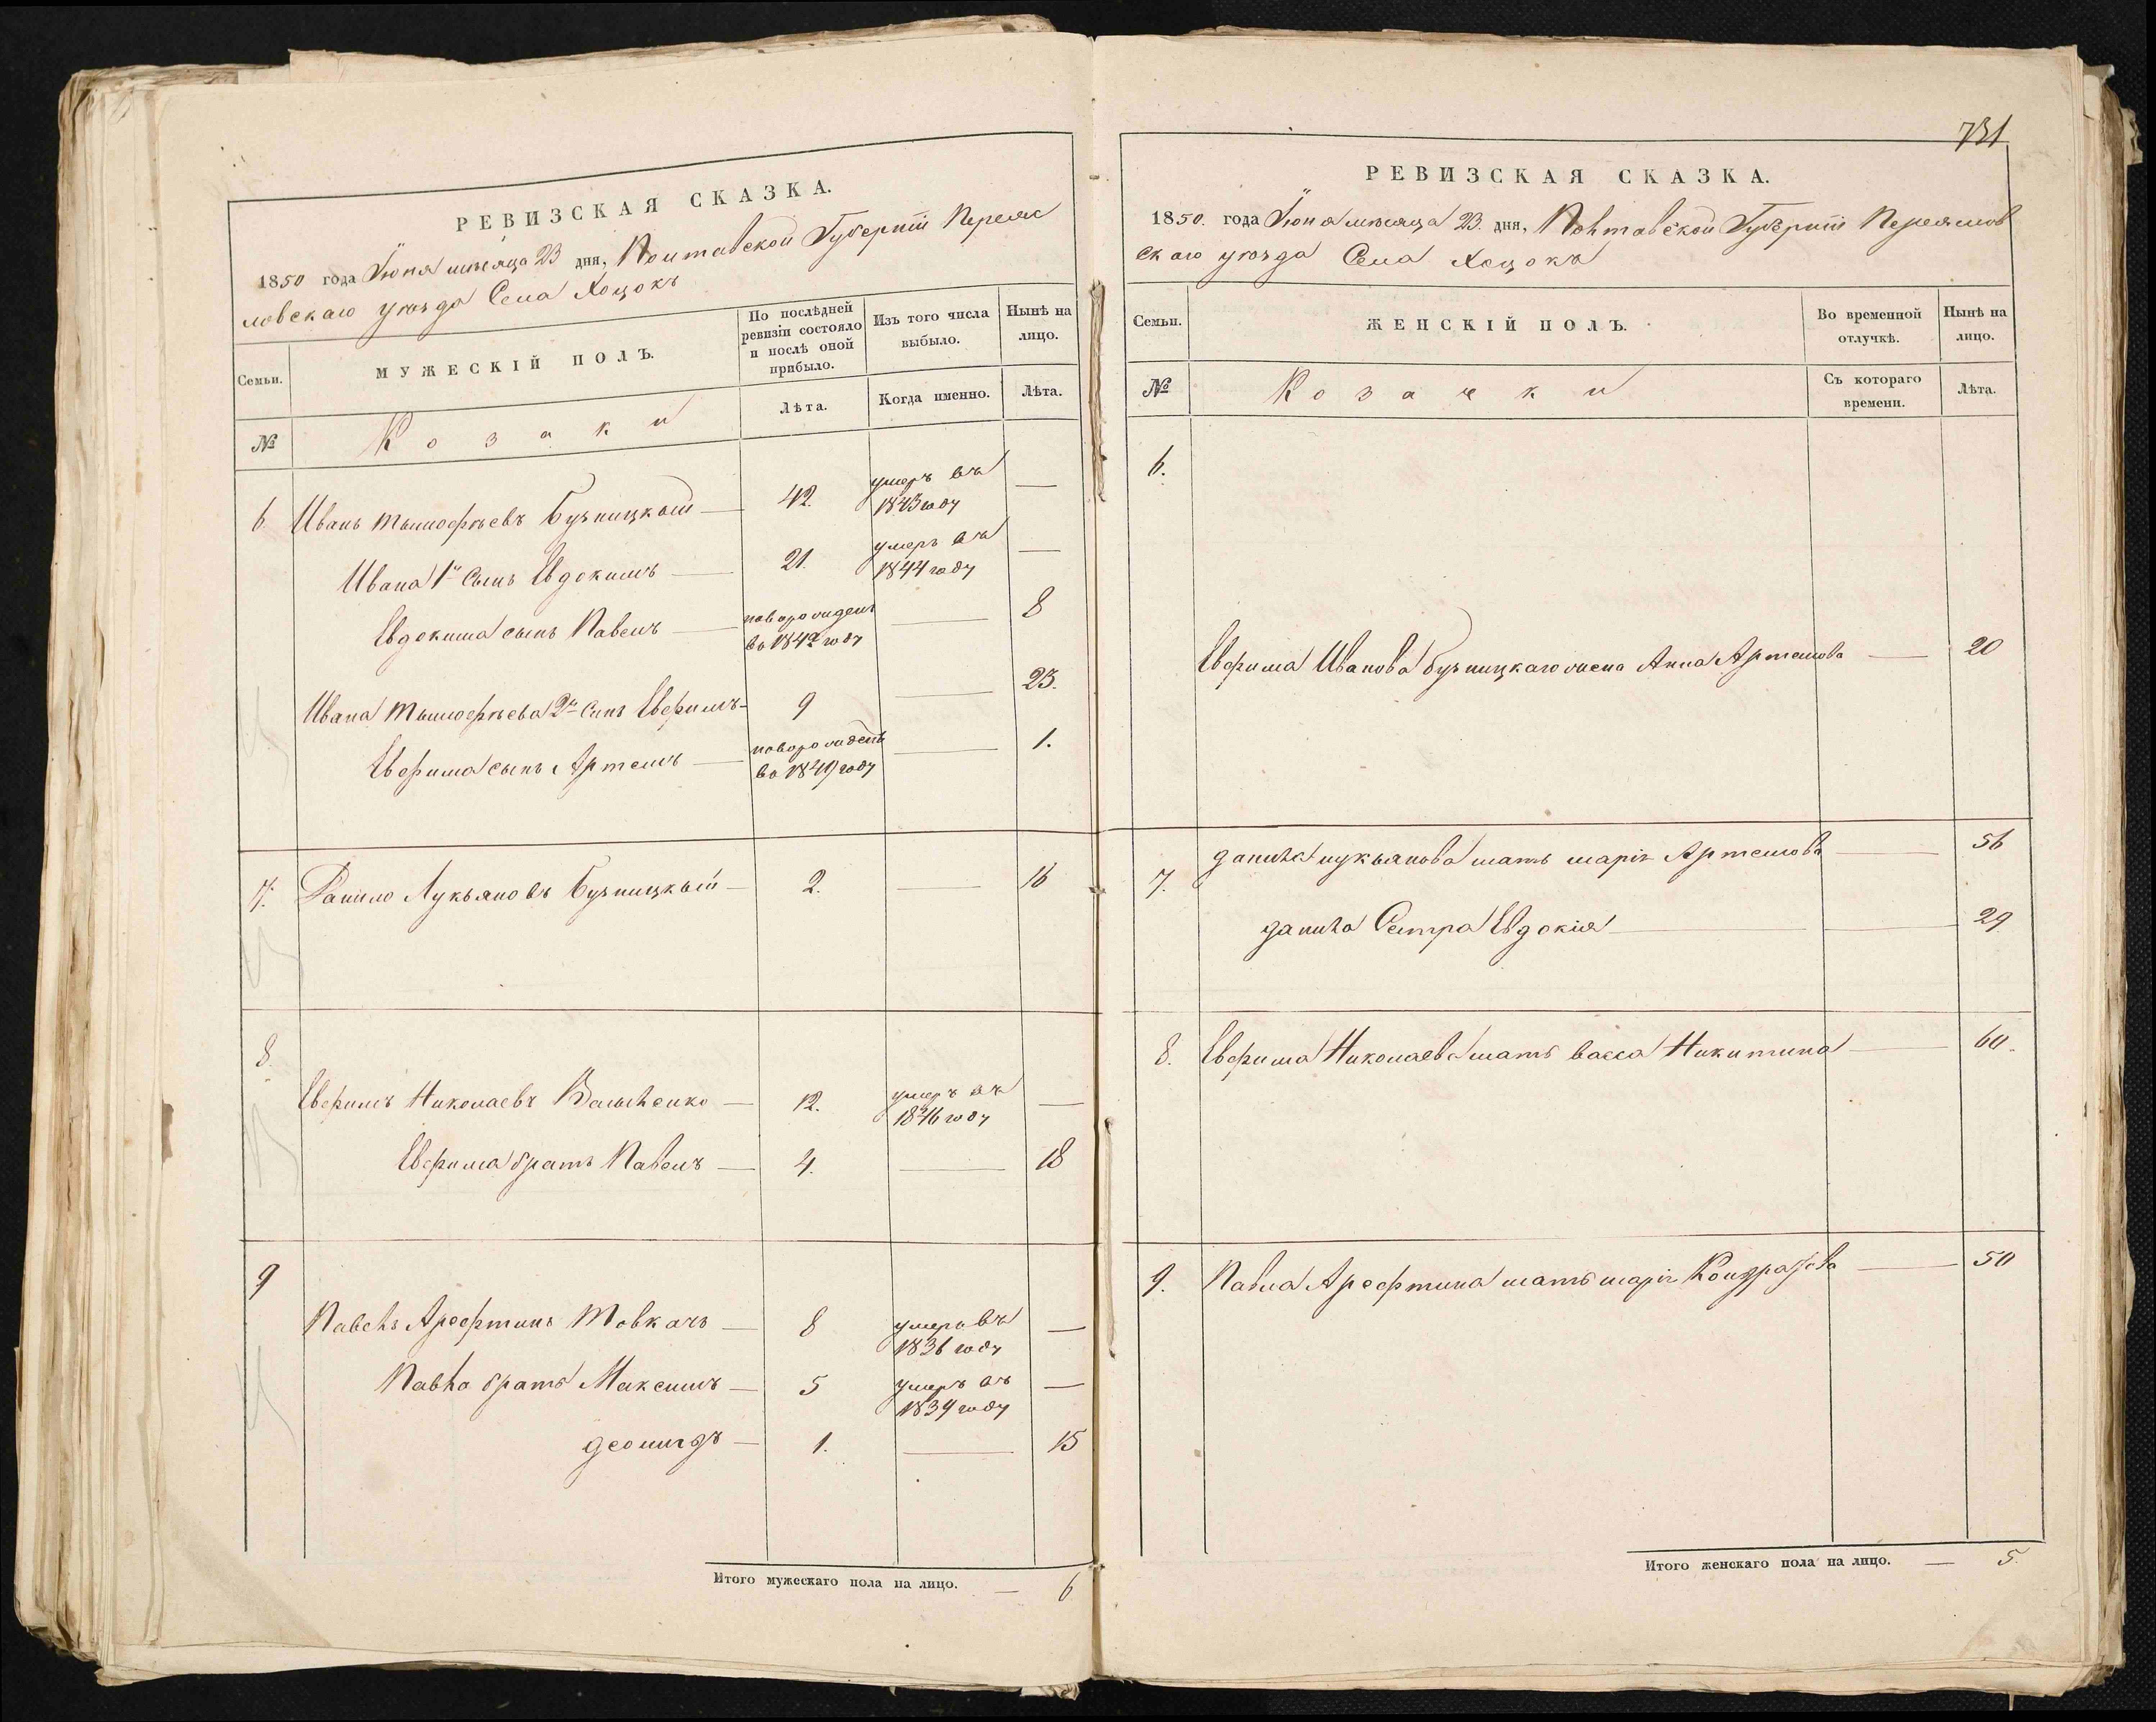 РЕВИЗСКАЯ СКАЗКА.
1850 года Іюня мѣсяца 23 дня, Полтавской Губерніи Переяс
ловскаго уѣзда Села Хоцокъ
Семьи.
МУЖЕСКІЙ ПОЛЪ.
По послѣдней ревизіи состояло и послѣ оной прибыло.
Изъ того числа выбыло.
Нынѣ на лицо.
№
Козаки
Лѣта.
Когда именно.
Лѣта.
6 Иванъ Тимофѣевъ Бучницкый — 42. умеръ въ 1843 году —
Ивана 1й Сынъ Евдокимъ — 21. умеръ въ 1844 году —
Евдокима сынъ Павелъ — новорожденъ во 1842 году — 8
Ивана Тимофѣева 2й Сынъ Ефримъ — 9 — 23.
Ефрима сынъ Артемъ — новорожденъ во 1849 году — 1.
7. Данило Лукьяновъ Бучницкый — 2. — 16
8.
Ефримъ Николаевъ — 12. умеръ въ 1846 году —
Ефрима братъ Павелъ — 4. — 18
9
Павелъ Арефтинъ Товкачъ — 8 умеръ въ 1836 году —
Павла братъ Максимъ — 5 умеръ въ 1839 году —
Деонидъ — 1. — 15
Итого мужескаго пола на лицо. — 6
731
РЕВИЗСКАЯ СКАЗКА.
1850. года Іюня мѣсяца 23. дня, Полтавской Губерніи Переяслов
скаго уѣзда Села Хоцокъ
Семьи.
ЖЕНСКІЙ ПОЛЪ.
Во временной отлучкѣ.
Нынѣ на лицо.
№
Козачки
Съ котораго времени.
Лѣта.
6.
Ефрима Иванова Бучницкаго жена Анна Артемова — 20
7. Данила Лукьянова мать Марія Артемова — 56
Данила Сестра Евдокія — 29
8. Ефрима Николаева мать Васса Никитина — 60.
9. Павла Арефтина мать Марія Кондратова — 50
Итого женскаго пола на лицо. — 5.